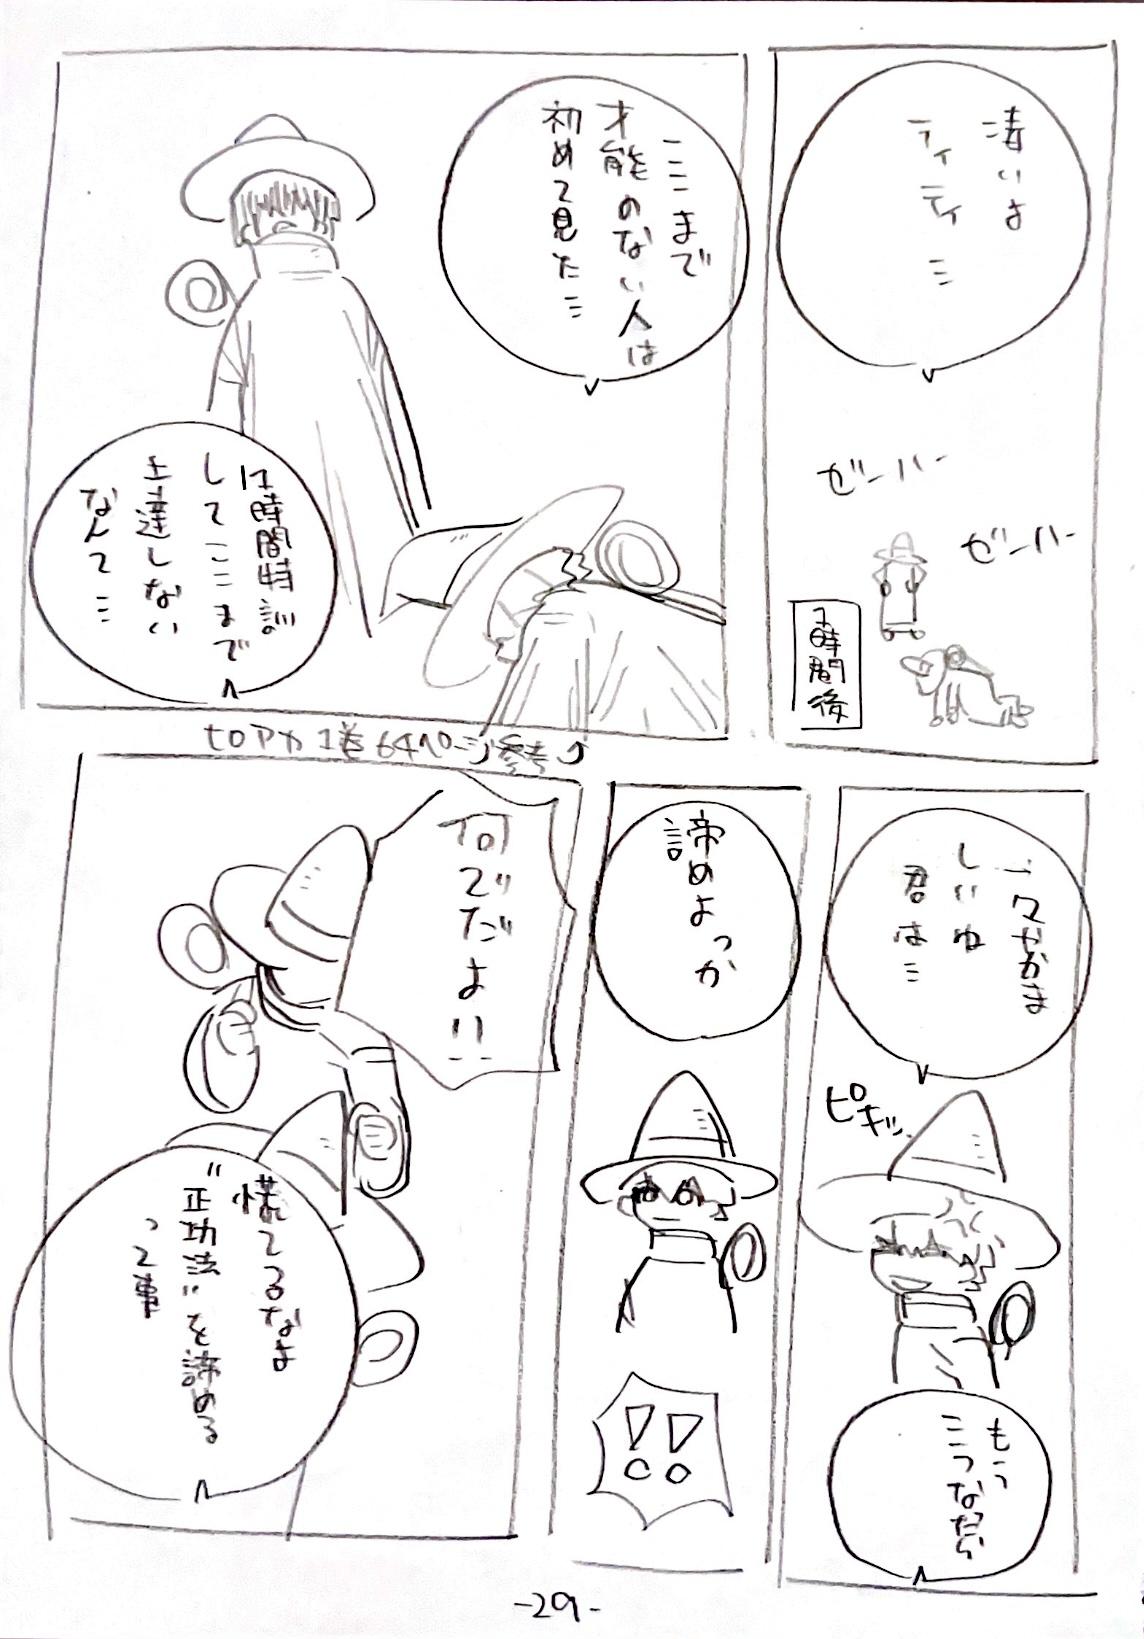 凄いよ
ティティ…
ゼーハー
ゼーハー
1時間後
ここまで
才能のない人は
初めて見た…
1時間特訓
してここまで
上達しない
なんて…
ヒロアカ1巻64ページ参考
一々やかま
しいね
君は…
ピキッ
もう
こうなたら
諦めよっか
!!
何でだよ!!
慌てるなよ
"正功法"を諦める
って事
-29-